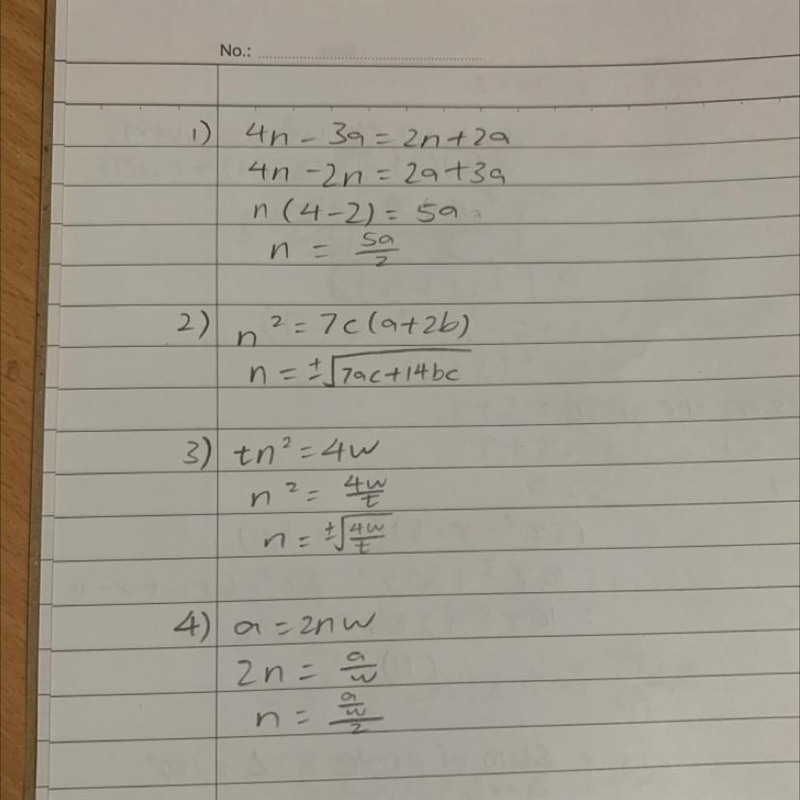 No.:
1) 4n - 3a = 2n + 2a
4n - 2n = 2a + 3a
n (4 - 2) = 5a
n = 5a/2
2) n² = 7c (a + 2b)
n = ±√(7ac + 14bc)
3) tn² = 4w
n² = 4w/t
n = ±√(4w/t)
4) a = 2nw
2n = a/w
n = (a/w)/2